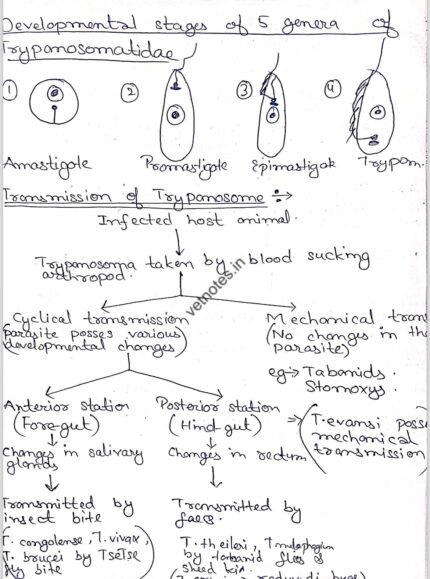 Developmental stages of 5 genera of
Trypanosomatidae
① ② ③ ④
Amastigote Promastigote Epimastigote Trypom
Transmission of Trypanosome :→
Infected host animal.
Trypanosoma taken by blood sucking
arthropod.
vetnotes.in
Cyclical transmission
(Parasite posses various
developmental changes)
Mechanical tran
(No changes in th
parasite)
eg→ Tabanids.
Stomoxys.
Anterior station
(Foregut)
Changes in salivary
glands
Transmitted by
insect bite
T. congolense, T. vivax,
T. brucei by TseTse
fly bite
Posterior station
(Hind gut)
Changes in rectum
Transmitted by
faeces.
T. theileri,
by tabanid flies &
sheed kin.
⇒ (T. evansi poss
mechanical
transmission)